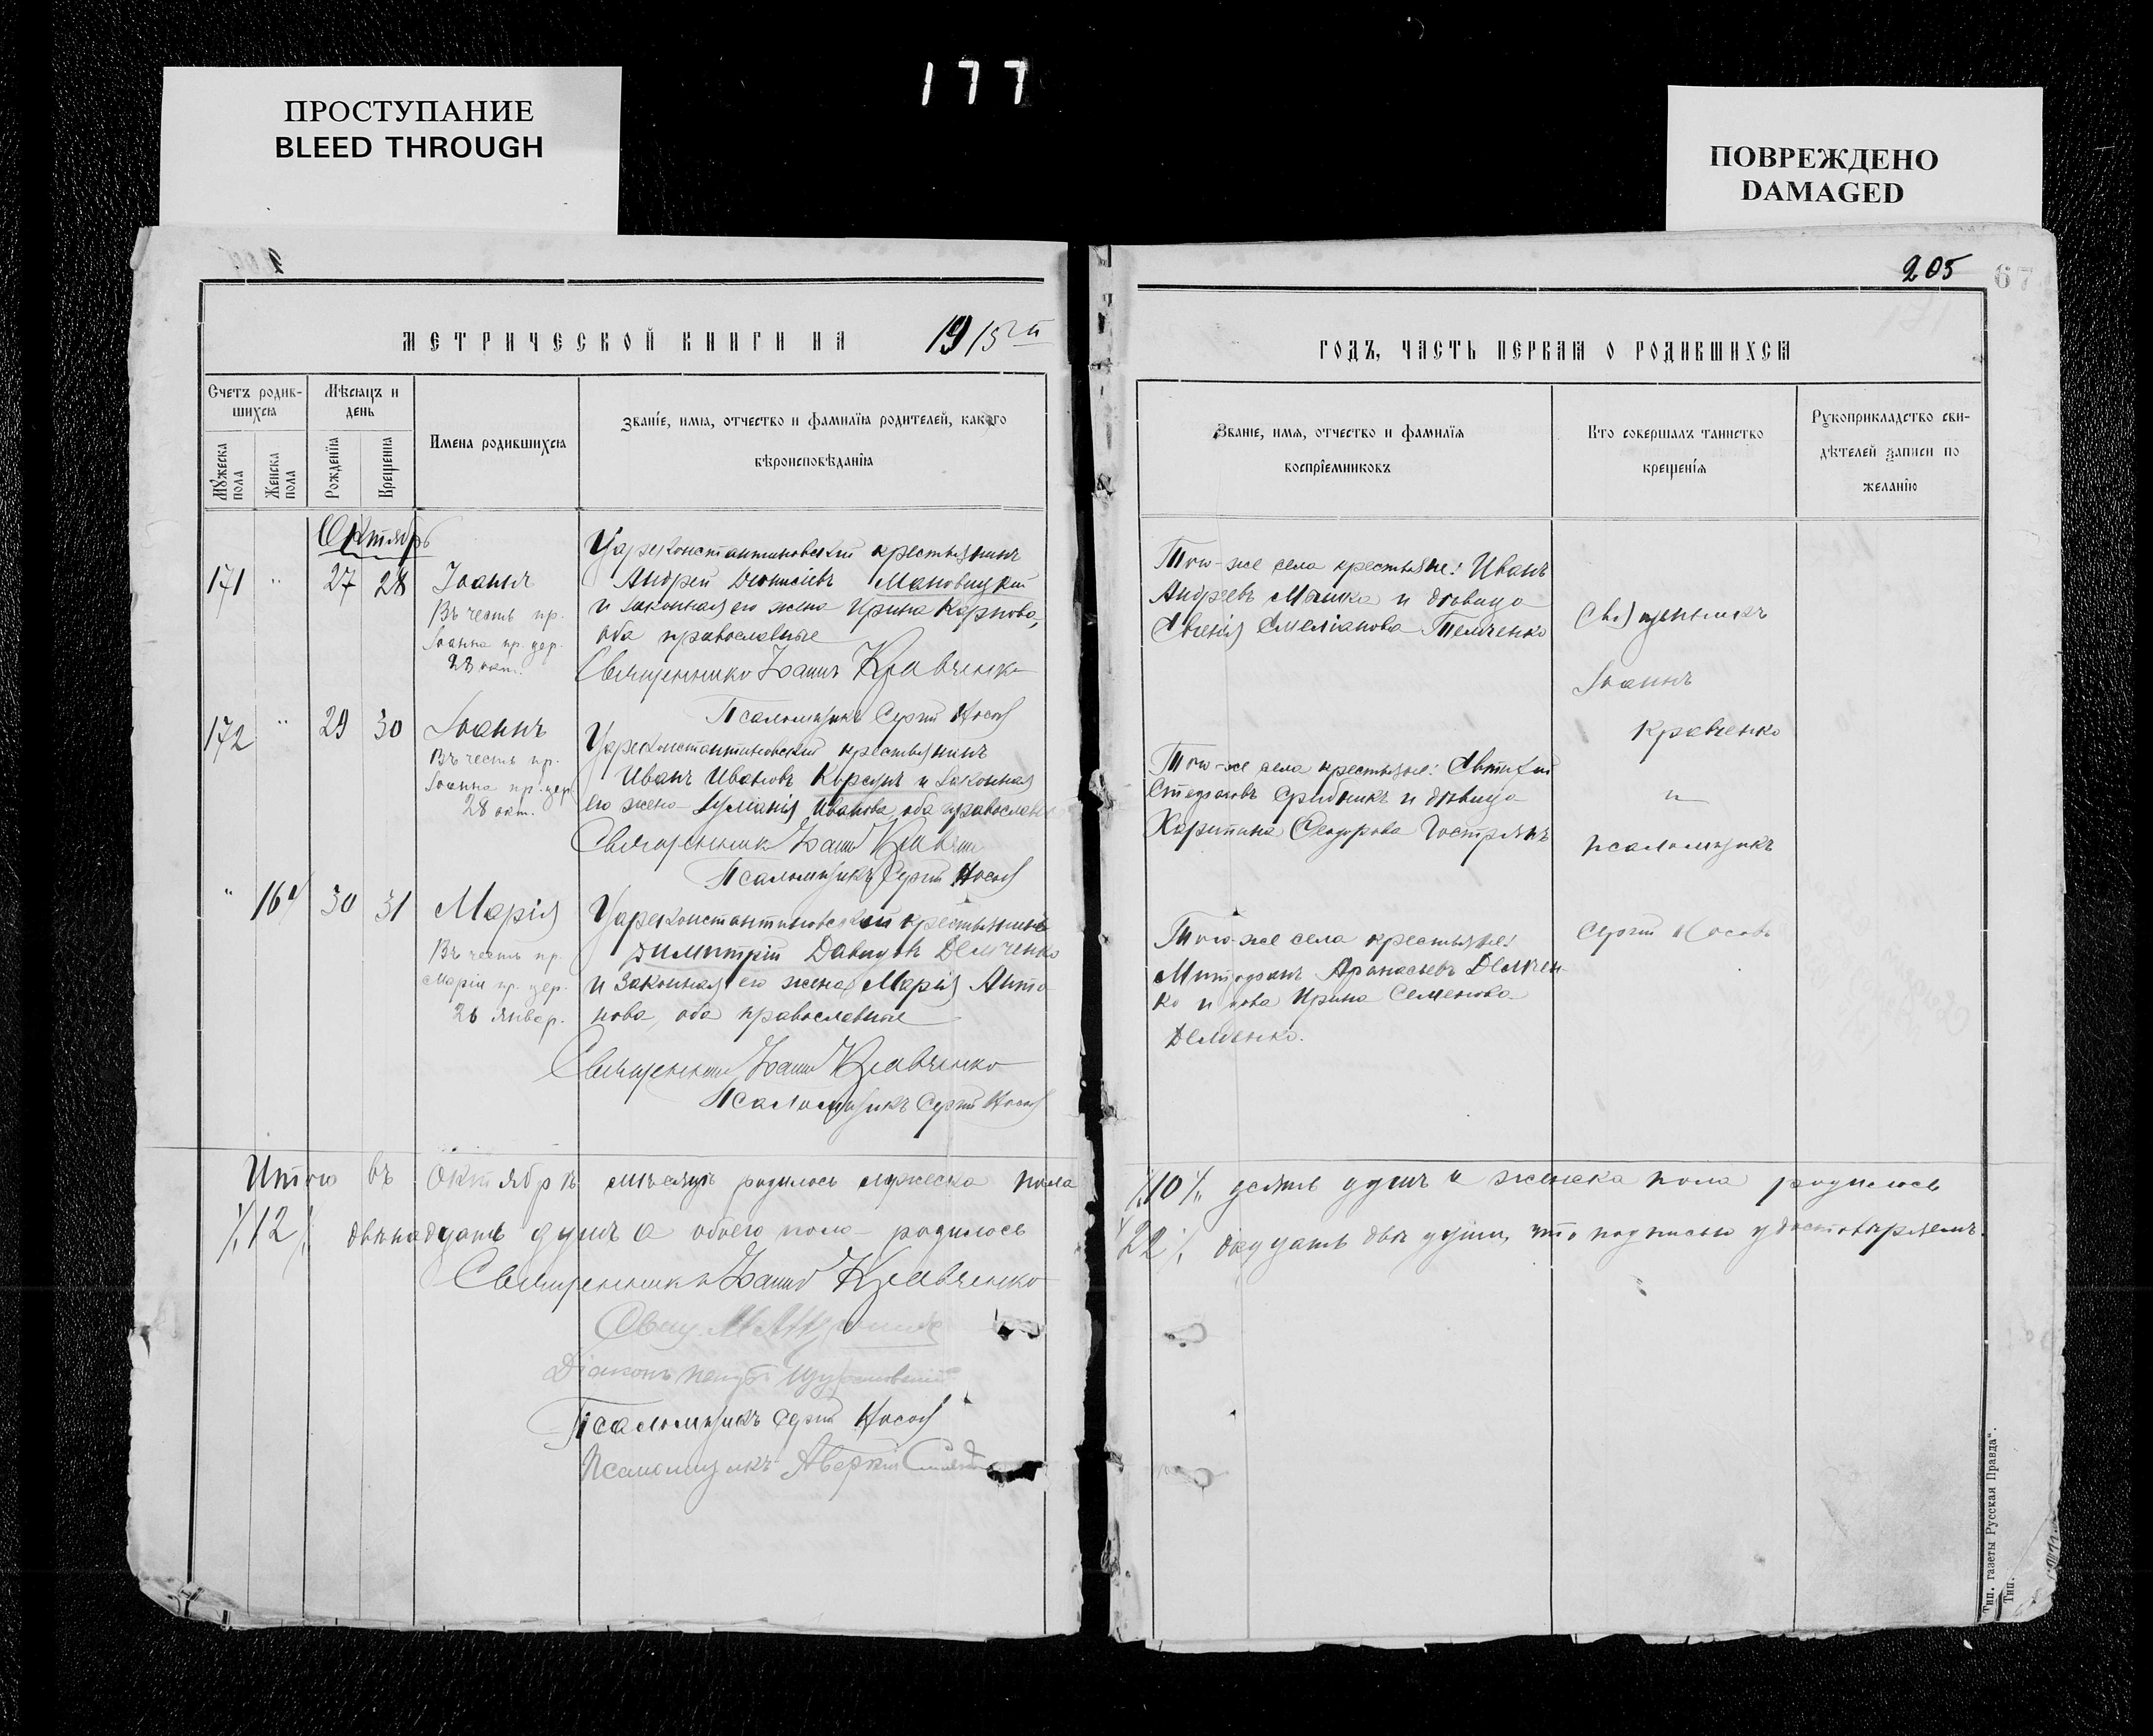 177
ПРОСТУПАНИЕ
BLEED THROUGH
ПОВРЕЖДЕНО
DAMAGED
МЕТРИЧЕСКОЙ КНИГИ НА 1915й
Счетъ родив-
шихся
Мѣсяцъ и
день
Мужеска
пола
Женска
пола
Рожденія
Крещенія
Имена родившихся
Званіе, имя, отчество и фамилія родителей, какого
вѣроисповѣданія
Октябрь
171 " 27 28 Іоаннъ
Въ честь пр.
Іоанна пр. цер.
28 окт.
Цареконстантиновскій крестьянинъ
Андрей Діонисіевъ Мановицкій
и законная его жена Ирина Карпова,
оба православные
Священникъ Іоаннъ Кравченко
Псаломщикъ Сергій Носовъ
172 " 29 30 Іоаннъ
Въ честь пр.
Іоанна пр. цер.
28 окт.
Цареконстантиновскій крестьянинъ
Иванъ Ивановъ Корсунъ и законная
его жена Іуліанія Иванова, оба православные
Священникъ Іоаннъ Кравченко
Псаломщикъ Сергій Носовъ
" 164 30 31 Марія
Въ честь пр.
Маріи пр. цер.
26 январ.
Цареконстантиновскій крестьянинъ
Димитрій Давидовъ Демченко
и законная его жена Марія Анто-
нова, оба православные
Священникъ Іоаннъ Кравченко
Псаломщикъ Сергій Носовъ
Итого въ Октябрѣ мѣсяцѣ родилось мужеска пола
12 двѣнадцать душъ а обоего пола родилось
Священникъ Іоаннъ Кравченко
Свящ.
Діаконъ
Псаломщикъ Сергій Носовъ
Псаломщикъ Аверкій
205
67
ГОДЪ, ЧАСТЬ ПЕРВАЯ О РОДИВШИХСЯ
Званіе, имя, отчество и фамилія
воспріемниковъ
Кто совершалъ таинство
крещенія
Рукоприкладство сви-
дѣтелей записи по
желанію
Того-же села крестьяне: Иванъ
Андреевъ и дѣвица
Евгенія Емеліанова
Того-же села крестьяне: Евтихій
Стефановъ и дѣвица
Харитина Феодорова
Того-же села крестьяне:
Митрофанъ Афанасьевъ Демчен-
ко и Ирина Семенова
Демченко.
Священникъ
Іоаннъ
Кравченко
и
псаломщикъ
Сергій Носовъ
10 десять душъ и женска пола родилось
22 двадцать двѣ души, что подписью удостовѣряемъ.
Тип. газеты Русская Правда".
Тип.